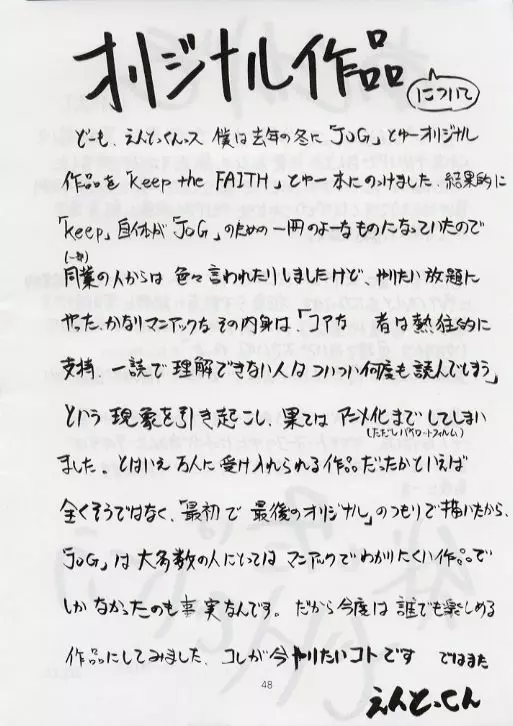 オリジナル作品
について
どーも、えんとっくんっス 僕は去年の冬に「JoG」とゆーオリジナル
作品を「keep the FAITH」とゆー本にのっけました、結果的に
「keep」自体が「JoG」のための一冊のよーなものになっていたので
(一部)
同業の人からは 色々言われたりしましたけど、やりたい放題に
やった、かなりマニアックな その内身は、「コアな 者は熱狂的に
支持、一読で理解できない人はついつい何度も読んでしまう」
という 現象を引き起こし、果ては アニメ化までしてしまい
(ただしパイロットフィルム)
ました。とはいえ万人に受け入れられる作品だったかといえば
全くそうではなく、「最初で 最後のオリジナル」のつもりで描いたから、
「JoG」は大多数の人にとっては マニアックでわかりにくい作品で
しかなかったのも事実なんです。だから今度は 誰でも楽しめる
作品にしてみました、コレが今やりたいコトです ではまた
48
えんとっくん